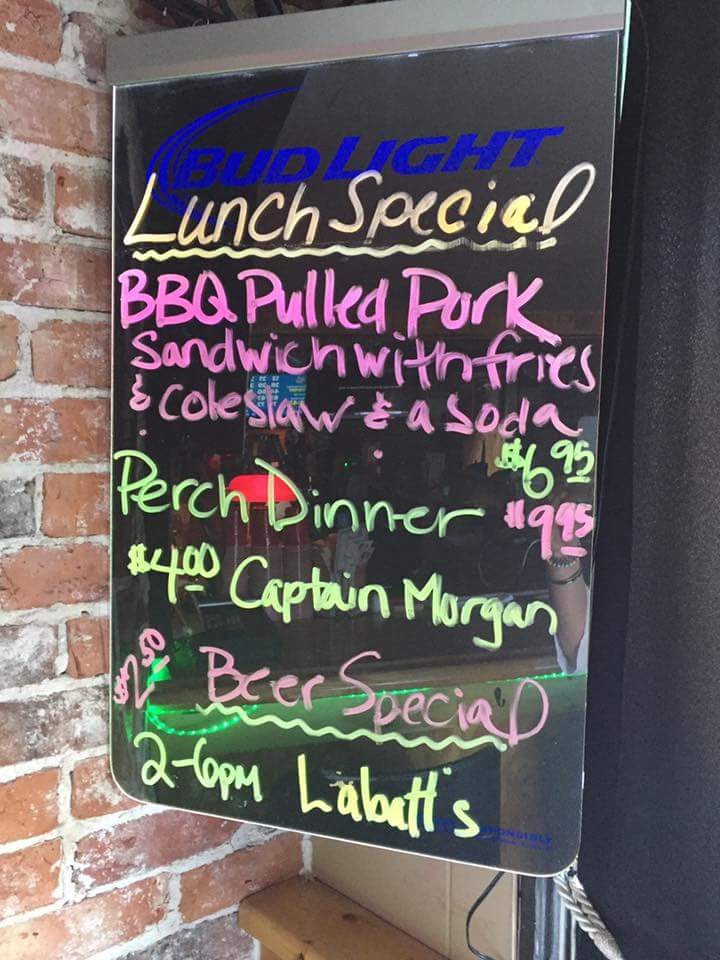 BUD LIGHT
Lunch Special
BBQ Pulled Pork
Sandwich with fries
& coleslaw & a soda
$6.95
Perch Dinner $9.95
$4.00 Captain Morgan
$2.50 Beer Special
2-6pm Labatt's